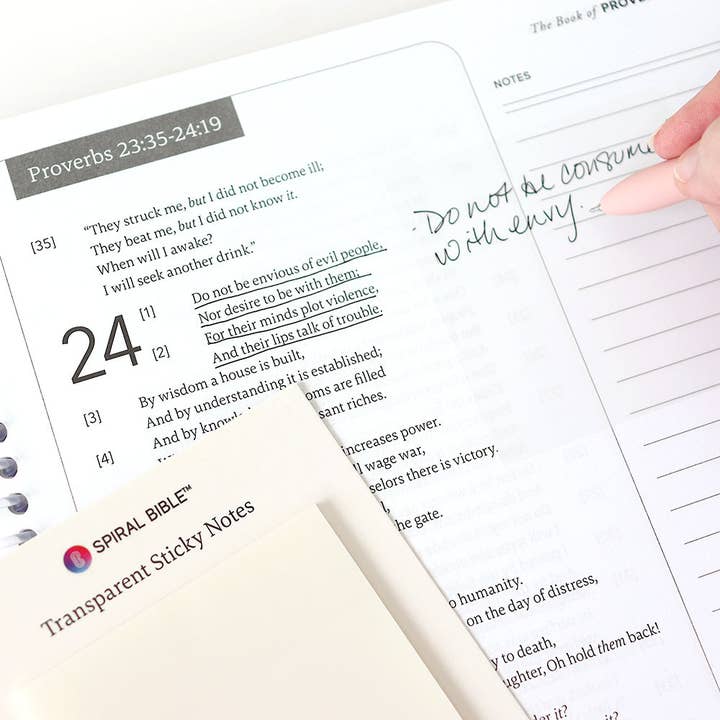 The Book of
NOTES
Proverbs 23:35-24:19
[35] "They struck me, but I did not become ill;
They beat me, but I did not know it.
When will I awake?
I will seek another drink."
24
[1] Do not be envious of evil people,
Nor desire to be with them;
[2] For their minds plot violence,
And their lips talk of trouble.
[3] By wisdom a house is built,
And by understanding it is established;
[4] And by oms are filled
sant riches.
increases power.
wage war,
selors there is victory.
he gate.
o humanity.
on the day of distress,
y to death,
ughter, Oh hold them back!
it?
it?
· Do not be consum
with envy.
SPIRAL BIBLE™
Transparent Sticky Notes